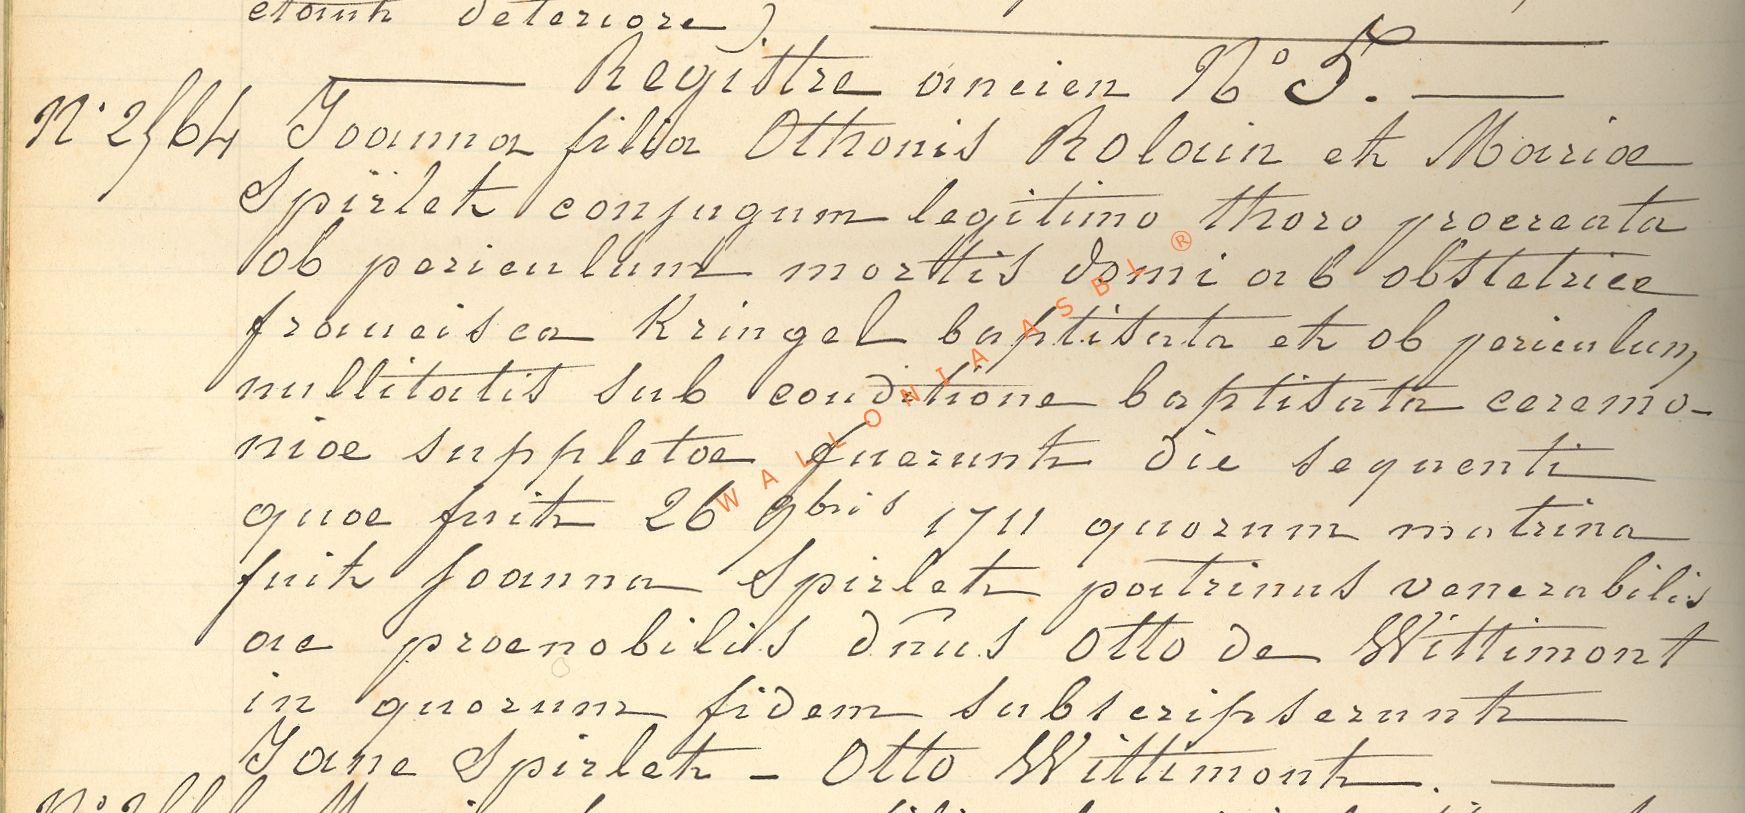 étant détériore).
Registre ancien N° 5.
N° 2564 Joanna filia Othonis Rolain et Mariae
Spirlet conjugum legitimo thoro procreata
ob periculum mortis domi ab obstetrice
francisca Kringel baptisata et ob periculum
nullitatis sub conditione baptisata ceremo-
niae suppletae fuerunt die sequenti
quae fuit 26 9bris 1711 quorum matrina
fuit Joanna Spirlet patrinus venerabilis
ac praenobilis dn̄us Otto de Wittimont
in quorum fidem subscripserunt
Jane Spirlet - Otto Wittimont.
WALLONIA ASBL ®